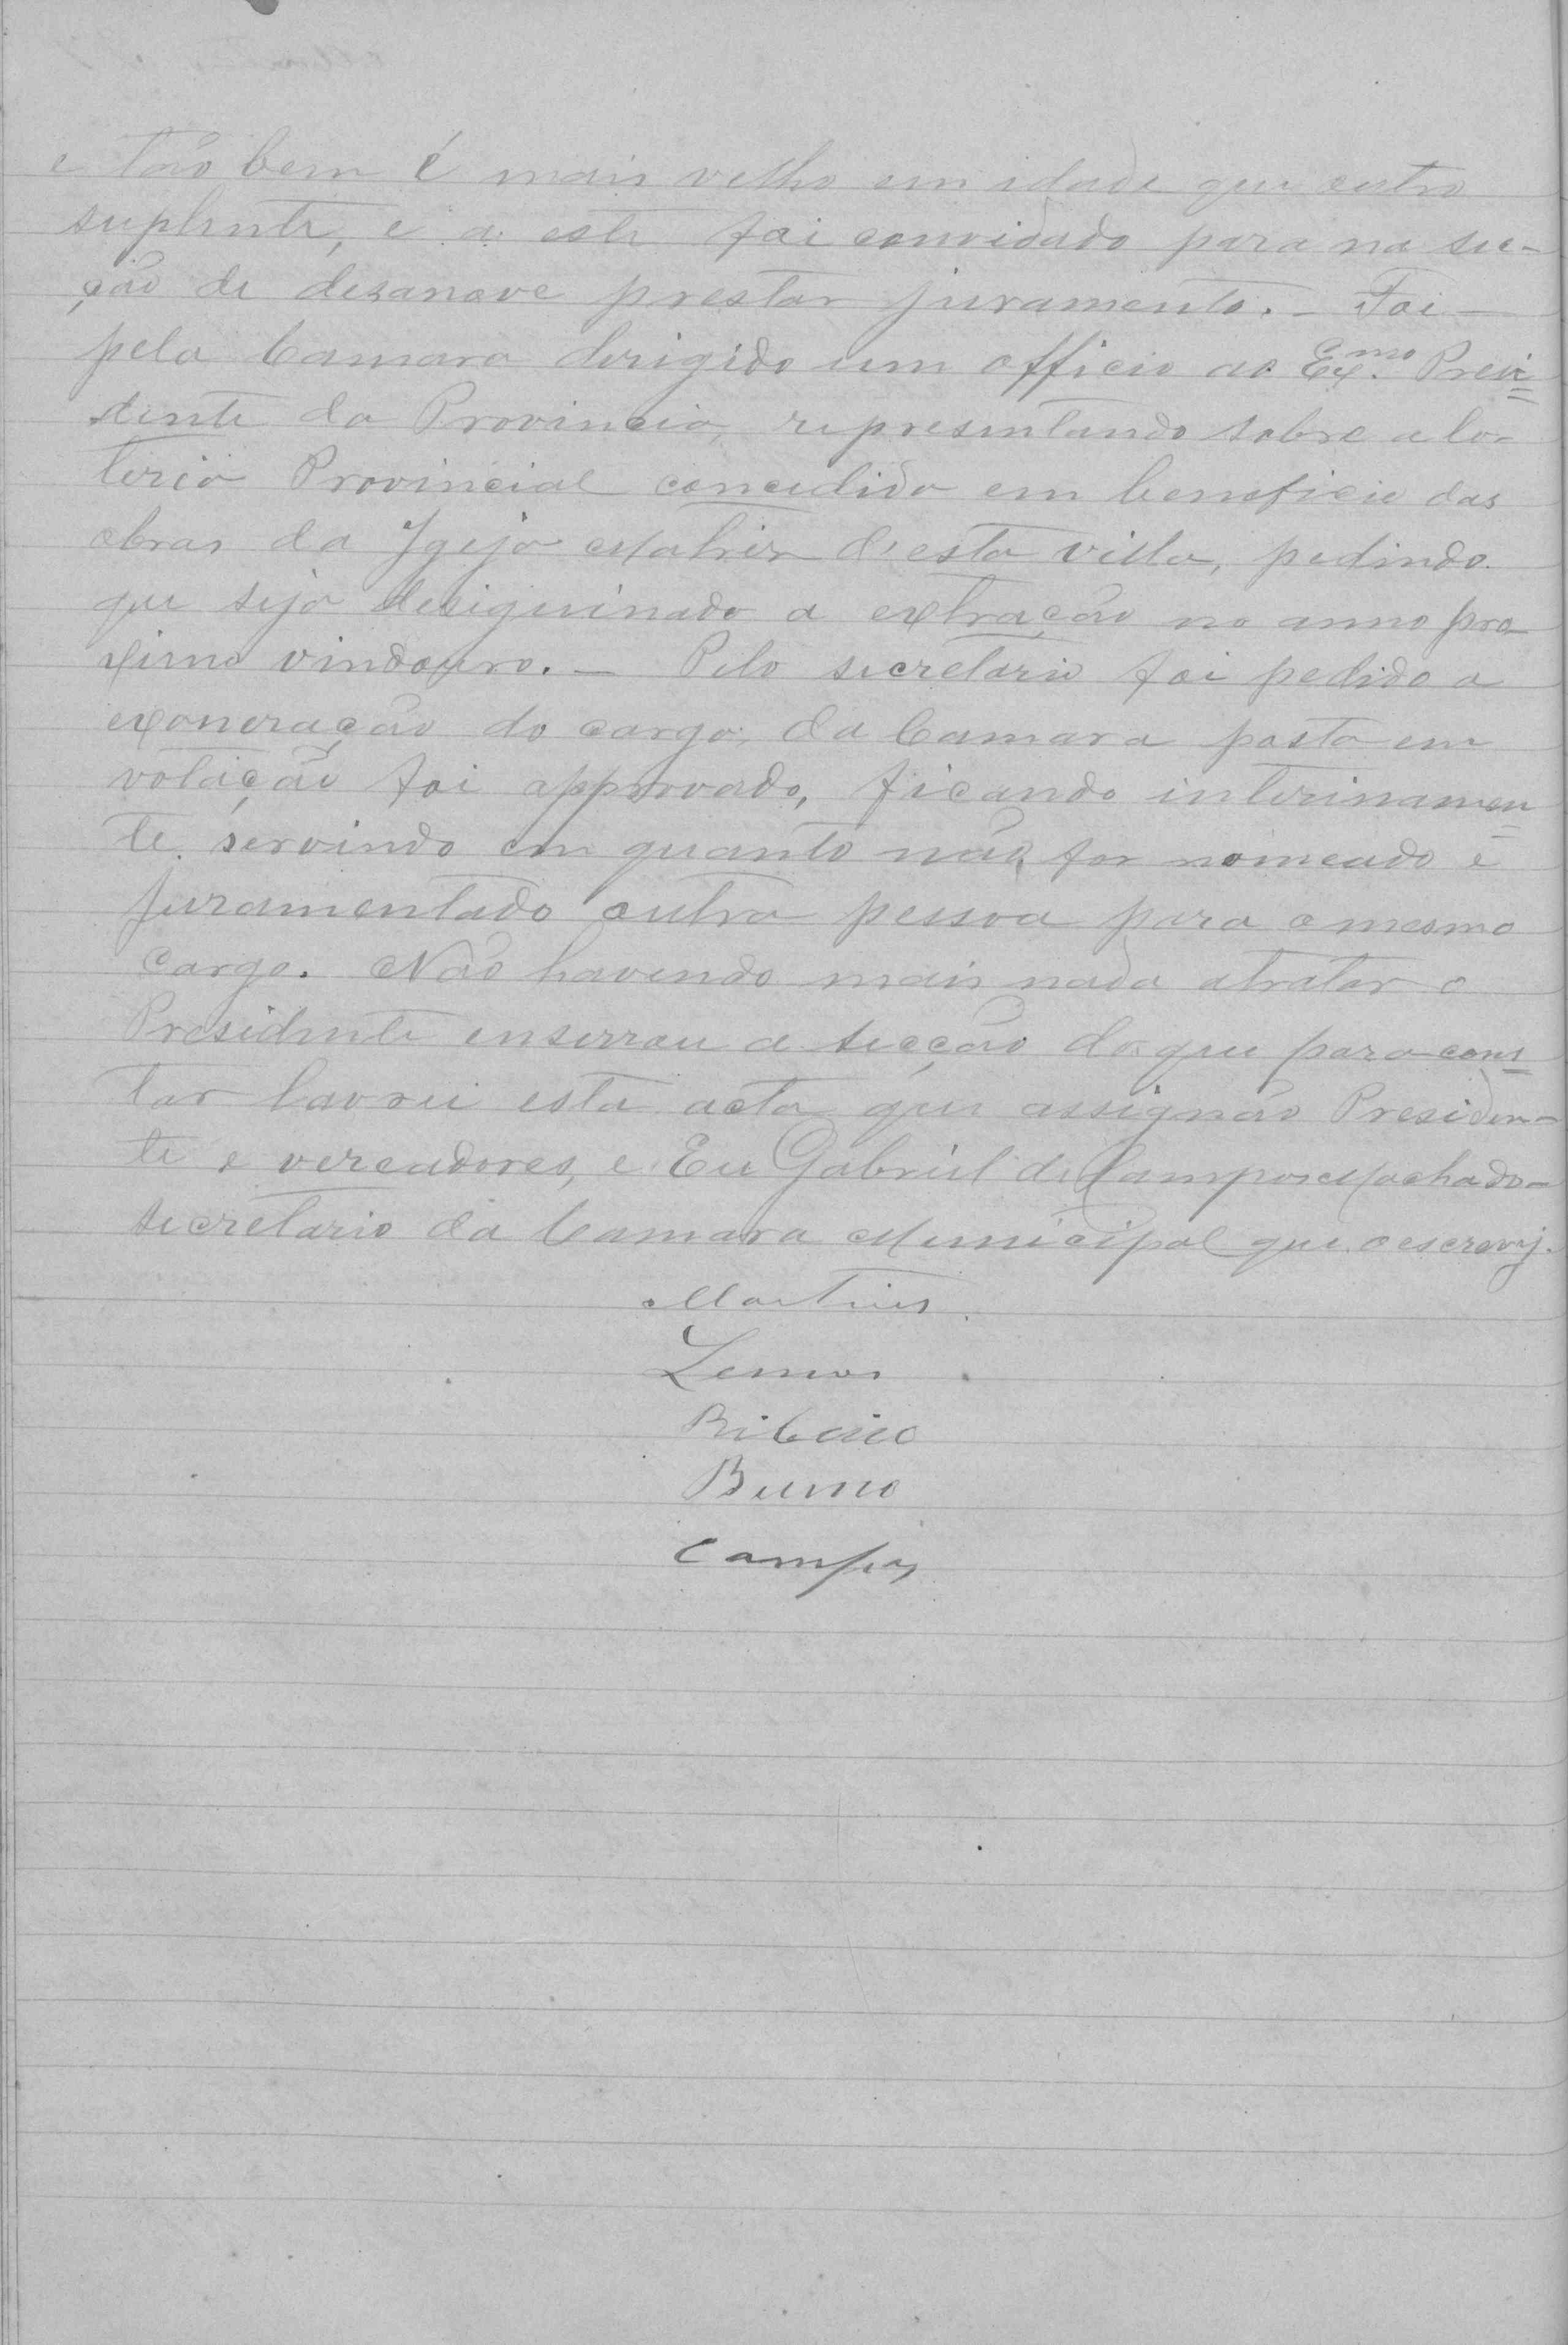 e tão bem é mais velho em idade que outro
suplente, e a este foi convidado para na sec-
ção de desanove prestar juramento. - Foi -
pela Camara derigido um officio ao Ex.mo Presi=
dente da Provincia, representando sobre a lo-
teria Provincial concedida em beneficio das
obras da Igeja Matriz d'esta villa, pedindo
que seja desiguinado a extração no anno pro-
ximo vindouro. - Pelo secretario foi pedido a
exoneração do cargo, da Camara posta em
votação foi approvado, ficando interinamen=
te servindo em quanto não for nomeado e
juramentado outra pessoa para o mesmo
cargo. Não havendo mais nada atratar o
Presidente enserrou a secção do que para cons=
tar lavrei esta acta que assignão Presiden-
te e vereadores, e Eu Gabriel de Campos Machado-
secretario da Camara Municipal que o escrevy.
Martins
Lemos
Ribeiro
Bueno
Campos